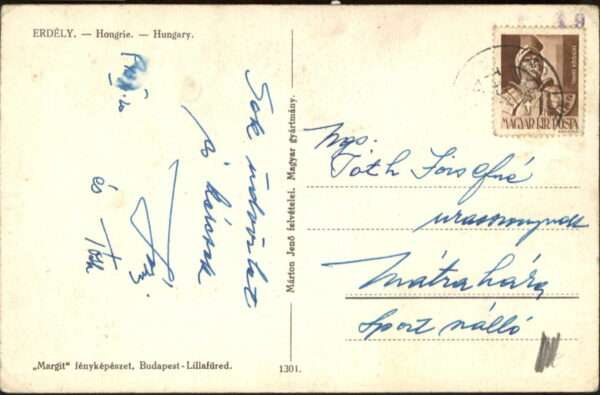 ERDÉLY. — Hongrie. — Hungary.
Sok üdvözlet
és
Tóth
Márton Jenő felvételei. Magyar gyártmány.
19
MAGYAR KIR. POSTA
Ngs.
Tóth Józsefné
urasszonynak
Mátraháza
Sport szálló
„Margit" fényképészet, Budapest-Lillafüred.
1301.